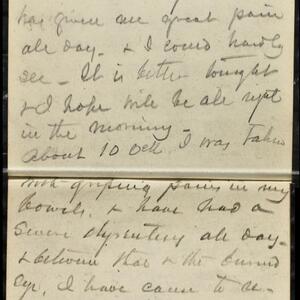 has given me great pain
all day - & I could hardly
see - It is better tonight
& I hope will be all right
in the morning -
About 10 Oclk, I was taken
with griping pains in my
bowels, & have had a
severe dysentery all day -
& between that & the burned
eye, I have come to